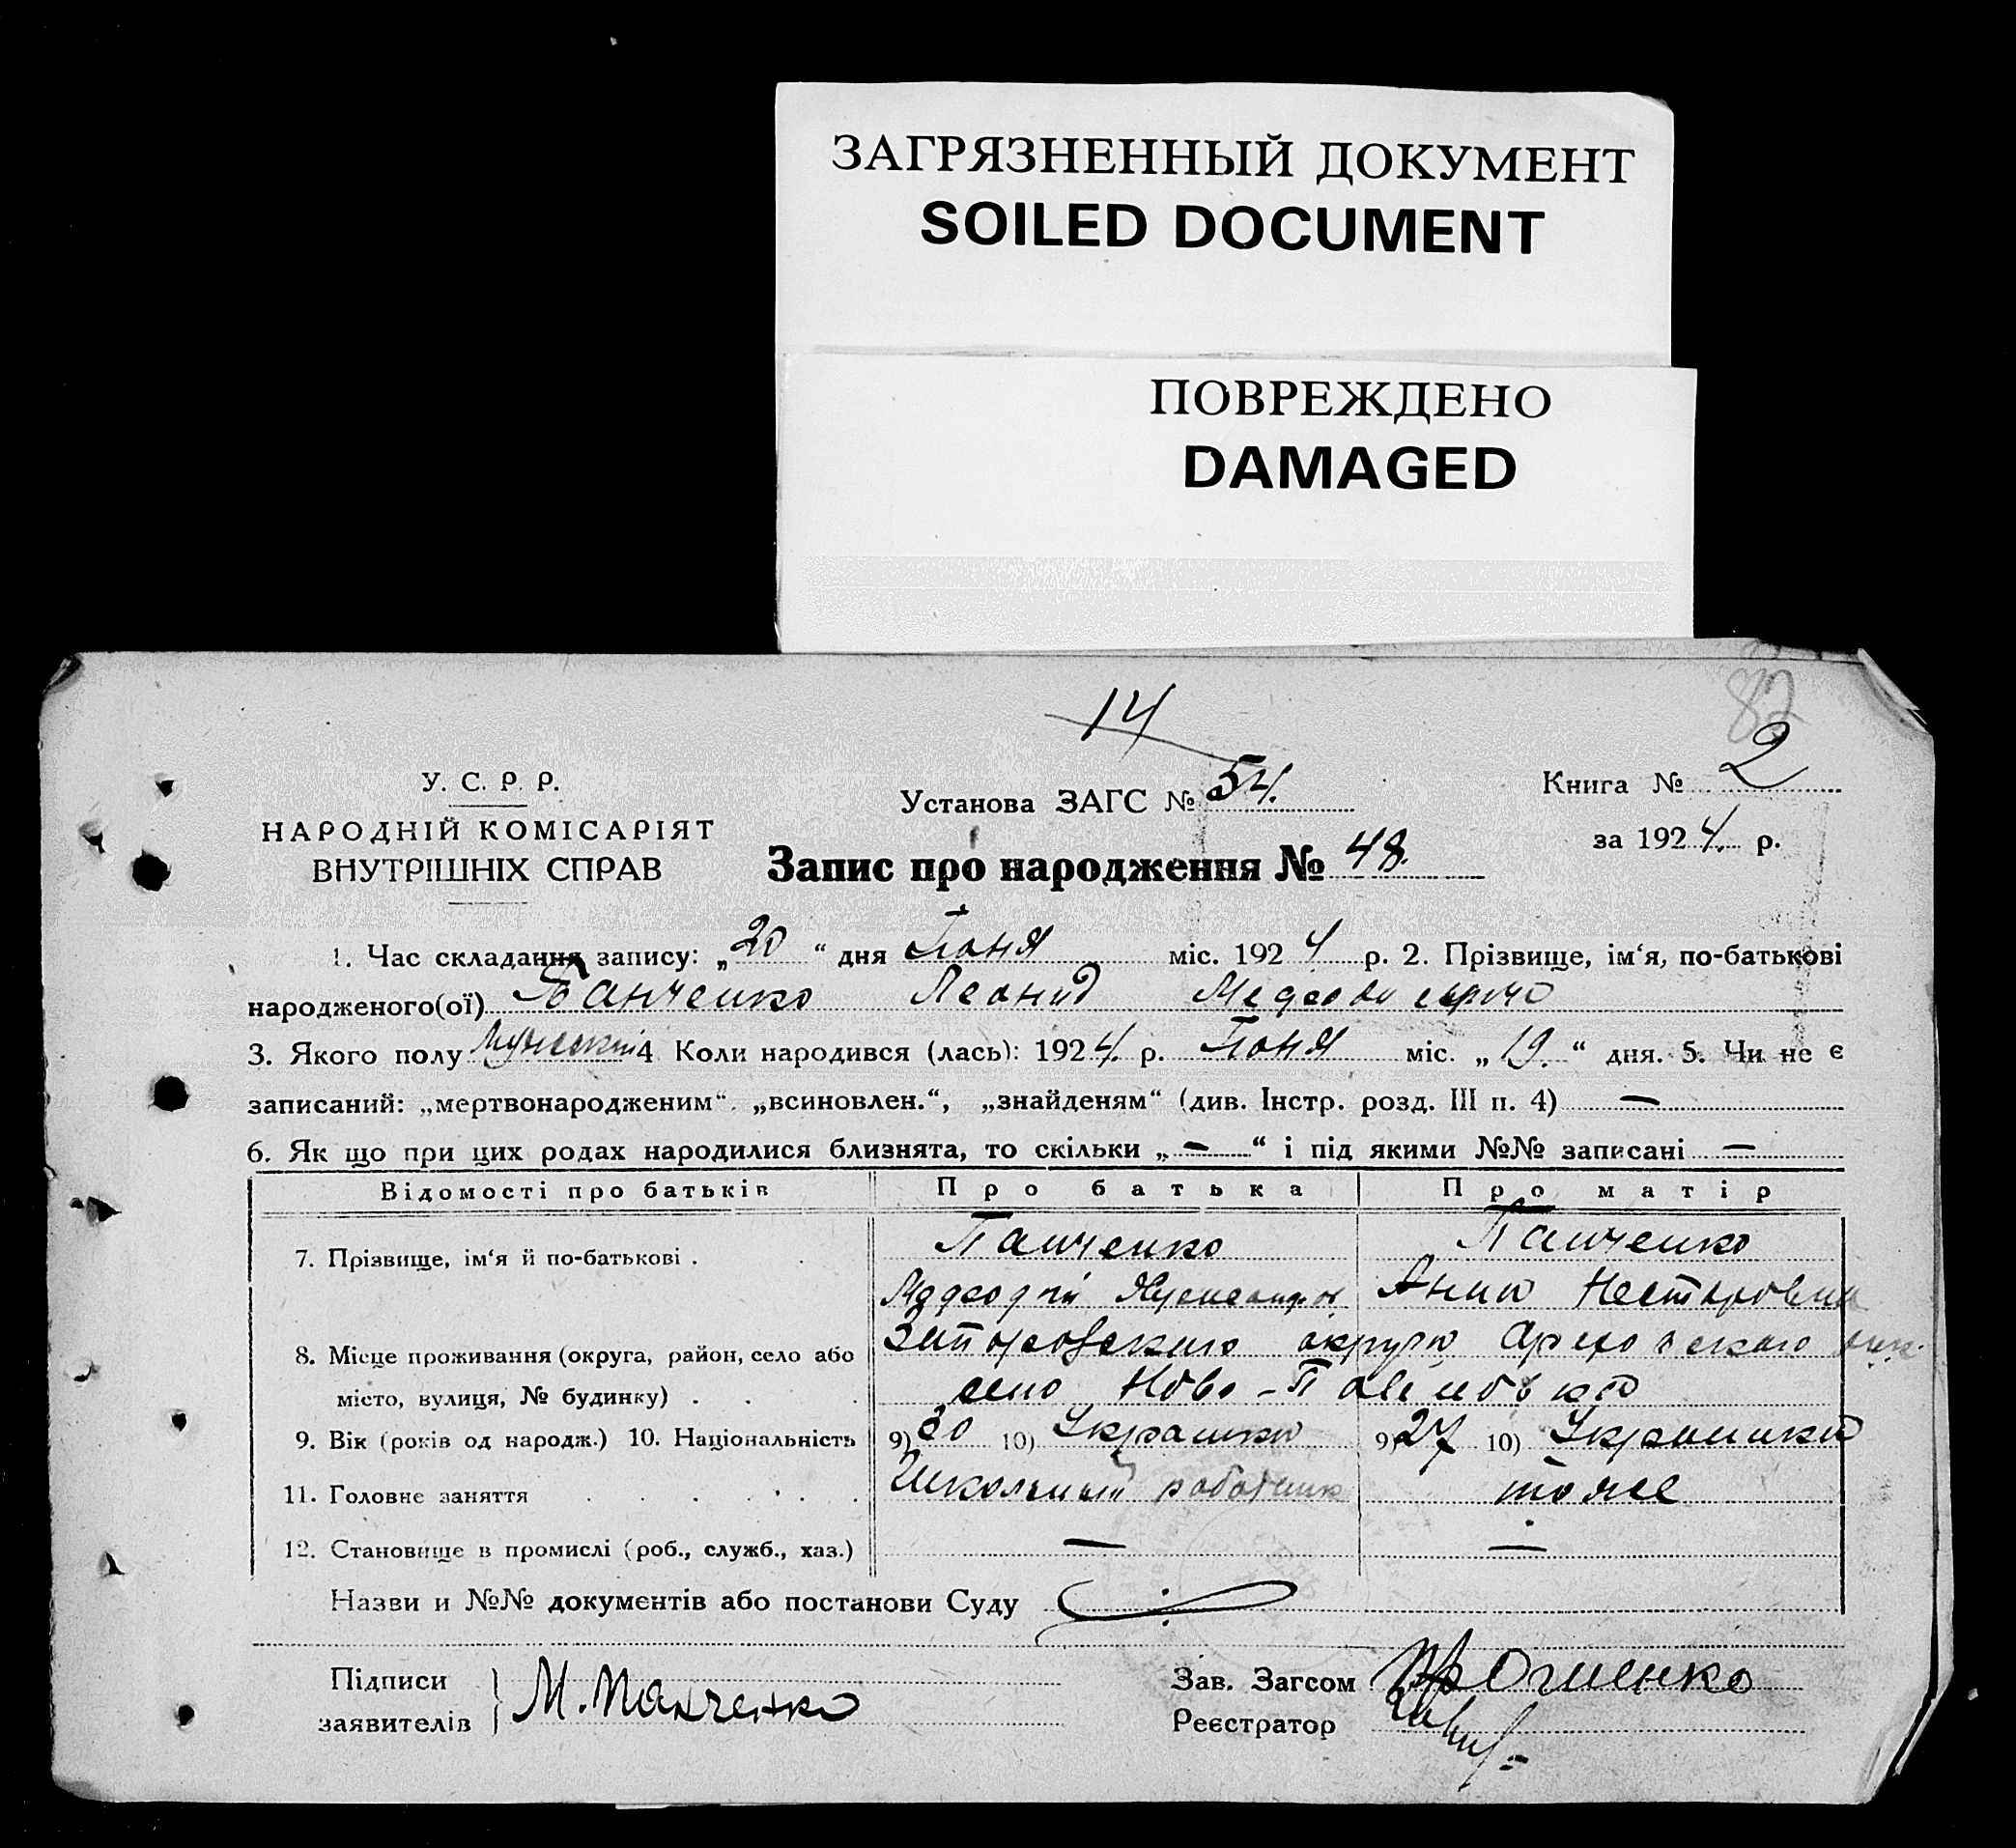 ЗАГРЯЗНЕННЫЙ ДОКУМЕНТ
SOILED DOCUMENT
ПОВРЕЖДЕНО
DAMAGED
82
14
У. С. Р. Р.
Установа ЗАГС № 54.
Книга № 2
НАРОДНІЙ КОМІСАРІЯТ
ВНУТРІШНІХ СПРАВ
за 1924. р.
Запис про народження № 48.
1. Час складання запису: „20“ дня Июня міс. 1924 р. 2. Прізвище, ім‘я, по-батькові
народженого(ої) Панченко Леонид
3. Якого полу Мужеский 4 Коли народився (лась): 1924. р. Июня міс. „19.“ дня. 5. Чи не є
записаний: „мертвонародженим“. „всиновлен.“, „знайденям“ (див. Інстр. розд. III п. 4) —
6. Як що при цих родах народилися близнята, то скільки „—“ і під якими №№ записані —
Відомості про батьків Про батька Про матір
7. Прізвище, ім‘я й по-батькові . Панченко Панченко
Анна Нестеровна
8. Місце проживання (округа, район, село або округа
місто, вулиця, № будинку) . . . село Ново-Павловка
9. Вік (років од народж.) 10. Національність 9) 30 10) Украинка 9) 27 10) Украинка
11. Головне заняття Школьный работник тоже
12. Становище в промислі (роб., служб., хаз.) — —
Назви и №№ документів або постанови Суду
Підписи
заявителів } М. Панченко
Зав. Загсом
Реєстратор